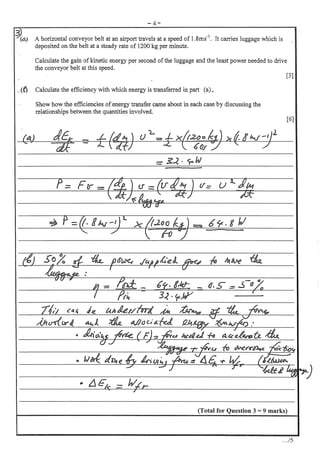 - 4 -
3
(a) A horizontal conveyor belt at an airport travels at a speed of 1.8ms⁻¹. It carries luggage which is
deposited on the belt at a steady rate of 1200 kg per minute.
Calculate the gain of kinetic energy per second of the luggage and the least power needed to drive
the conveyor belt at this speed.
[3]
(b) Calculate the efficiency with which energy is transferred in part (a).
Show how the efficiencies of energy transfer came about in each case by discussing the
relationships between the quantities involved.
[6]
(a) dEk/dt = 1/2 (dm/dt) v² = 1/2 × (1200 kg/60s) × (1.8 ms⁻¹)²
= 32.4 W
P = Fv = (dp/dt) v = (v dm/dt) v = v² dm/dt
luggage
⇒ P = (1.8 ms⁻¹)² × (1200 kg/60) = 64.8 W
(b) 50% of the power supplied goes to move the
luggage :
η = Pout/Pin = 64.8W/32.4W = 0.5 = 50%
This can be understood in terms of the forces
involved and the associated energy transfers :
• driving force (F) = force needed to accelerate the
luggage + force to overcome friction
• Work done by driving force = ΔEk + Wfr (between
belt & luggage)
• ΔEk = Wfr
(Total for Question 3 = 9 marks)
.../5